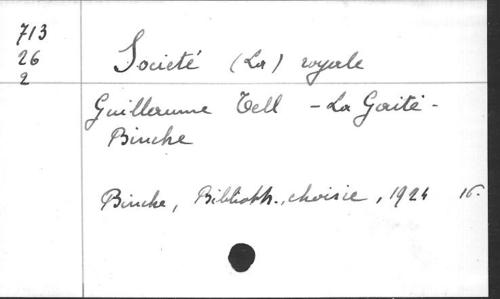 713
26
2
Société (La) royale
Guillaume Tell - La Gaité -
Binche
Binche, Biblioth., choisie, 1924 16.